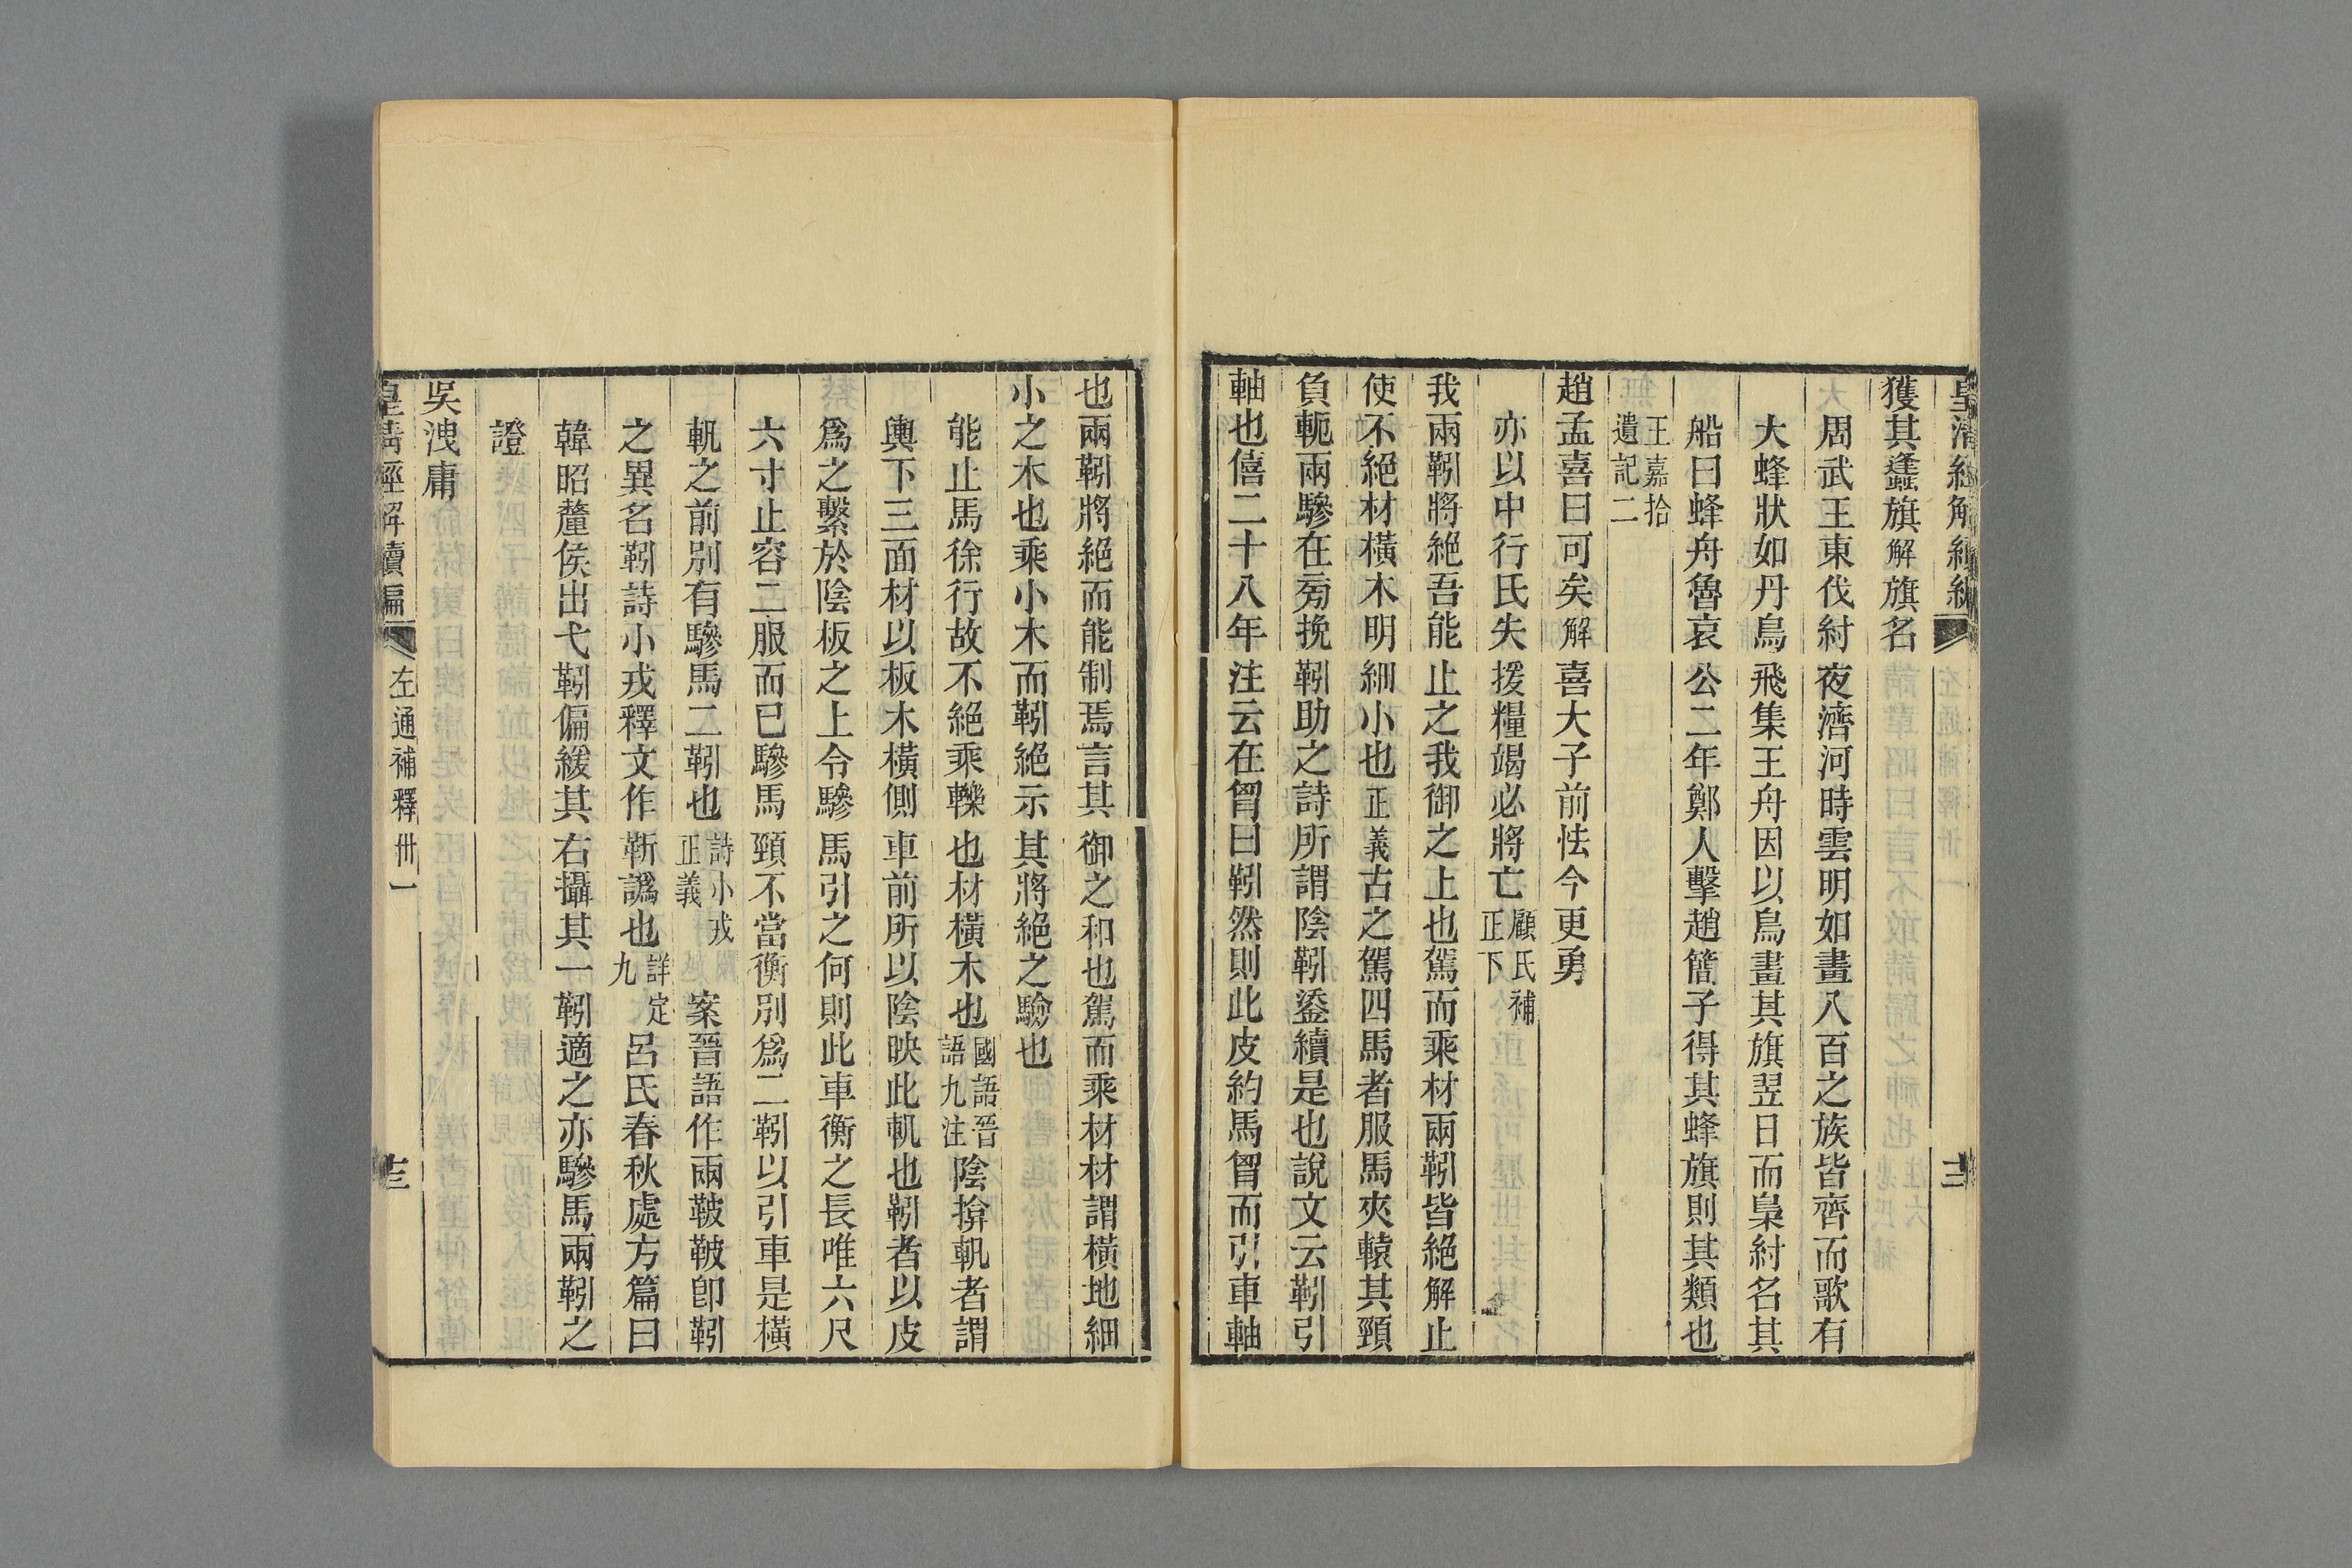 皇清經解續編
獲其蠭旗解旗名
周武王東伐紂夜濟河時雲明如晝八百之族皆齊而歌有
大蜂狀如丹鳥飛集王舟因以鳥畫其旗翌日而梟紂名其
船曰蜂舟魯哀公二年鄭人擊趙簡子得其蜂旗則其類也
王嘉拾
遺記二
趙孟喜曰可矣解喜大子前怯今更勇
亦以中行氏失援糧竭必將亡顧氏補
正下
我兩靷將絕吾能止之我御之上也駕而乘材兩靷皆絕解止
使不絕材橫木明細小也正義古之駕四馬者服馬夾轅其頸
負軛兩驂在旁挽靷助之詩所謂陰靷鋈續是也說文云靷引
軸也僖二十八年注云在胷曰靷然則此皮約馬胷而引車軸
也兩靷將絕而能制焉言其御之和也駕而乘材材謂橫地細
小之木也乘小木而靷絕示其將絕之驗也
能止馬徐行故不絕乘轢也材橫木也國語晉
語九注陰揜軓者謂
輿下三面材以板木橫側車前所以陰映此軓也靷者以皮
爲之繫於陰板之上令驂馬引之何則此車衡之長唯六尺
六寸止容二服而已驂馬頸不當衡別爲二靷以引車是橫
軓之前別有驂馬二靷也詩小戎
正義案晉語作兩鞁鞁卽靷
之異名靷詩小戎釋文作靳譌也詳定
九呂氏春秋處方篇曰
韓昭釐侯出弋靷偏緩其右攝其一靷適之亦驂馬兩靷之
證
吳洩庸
皇清經解續編
左通補釋卅一
十三